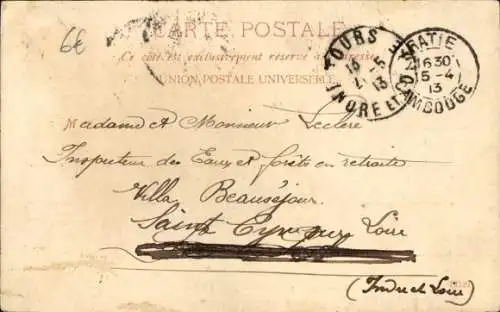 6€
CARTE POSTALE
Ce côté est exclusivement réservé à l'adresse
UNION POSTALE UNIVERSELLE
TOURS
13 -5
13
INDRE ET
KRATIE
16 30
5-4
13
CAMBODGE
Madame et Monsieur Leclère
Inspecteur des Eaux et forêts en retraite
Villa Beauséjour
Saint Cyr sur Loire
(Indre et Loire)